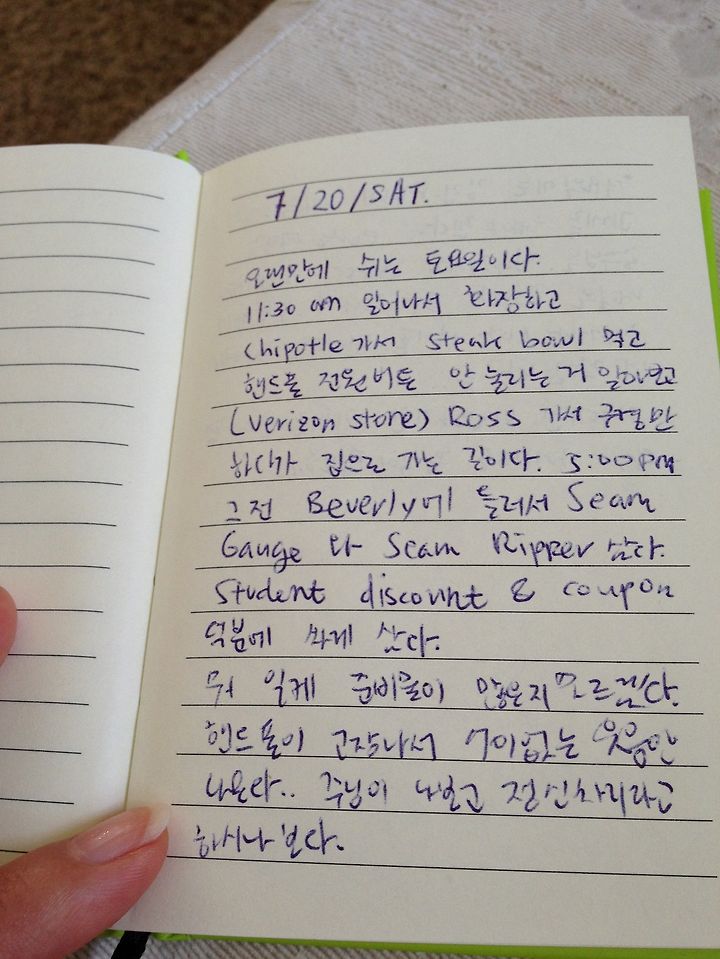 7/20/SAT.
오랜만에 쉬는 토요일이다.
11:30 am 일어나서 화장하고
Chipotle 가서 steak bowl 먹고
핸드폰 전원버튼 안 눌리는거 알아보고
(Verizon store) Ross 가서 구경만
하다가 집으로 가는 길이다. 5:00pm
그전 Beverly에 들러서 Seam
Gauge 와 Seam Ripper 샀다.
Student discount & coupon
덕분에 싸게 샀다.
뭐 일케 준비물이 많은지 모르겠다.
핸드폰이 고장나서 어이없는 웃음만
나온다.. 주님이 나보고 정신차리라고
하시나보다.